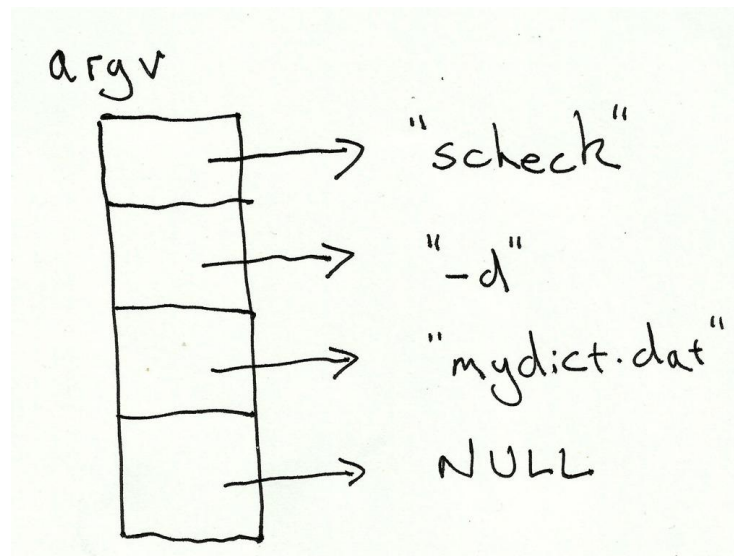 argv
"scheck"
"-d"
"mydict.dat"
NULL